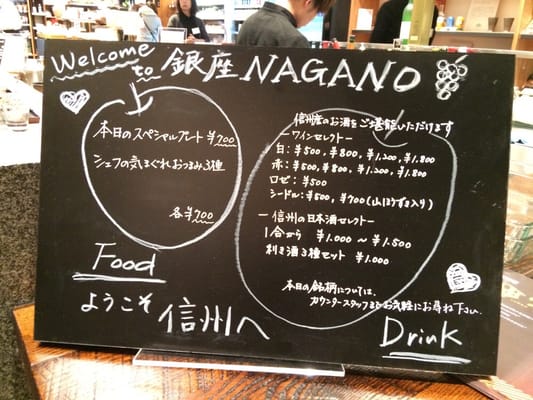 Welcome to 銀座NAGANO
本日のスペシャルプレート ¥700
シェフの気まぐれおつまみ3種
各¥700
Food
信州産のお酒をご堪能いただけます
ーワインセレクトー
白:¥500, ¥800, ¥1,200, ¥1,800
赤:¥500, ¥800, ¥1,200, ¥1,800
ロゼ:¥500
シードル:¥500, ¥700(山ほうずき入り)
ー信州の日本酒セレクトー
1合から ¥1,000 ~ ¥1,500
利き酒3種セット ¥1,000
本日の銘柄については、
カウンタースタッフまでお気軽にお尋ね下さい.
Drink
ようこそ 信州へ